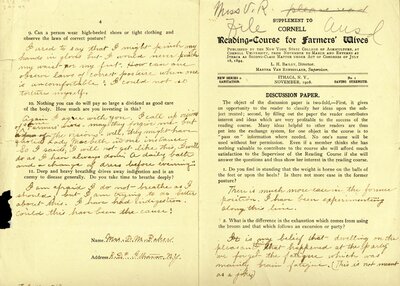 4
9. Can a person wear high-heeled shoes or tight clothing and
observe the laws of correct posture?
I used to say that I might pinch my
hands in gloves but I would never pinch
my feet as my foot. How can one
observe laws of correct posture when one
is uncomfortable? I could not so
torture myself.
10. Nothing you can do will pay so large a dividend as good care
of the body. How much are you investing in this?
Again I agree with you, I call up
Farmers' wives
had both, as one instance,
So I said, I will not get like this, I will
do as I have always done. A daily bath
and a change of dress before evening.
11. Deep and heavy breathing drives away indigestion and is an
enemy to general disease. Do you take time to breathe deeply?
I am afraid I do not breathe as I
should, but I am trying to do better
about this. I have had indigestion
could this have been the cause?
Name Mrs. D. M.
Address R.D. Ithaca N.Y.
Miss V. R.
File
SUPPLEMENT TO
CORNELL
Reading-Course for Farmers' Wives
PUBLISHED BY THE NEW YORK STATE COLLEGE OF AGRICULTURE, AT
CORNELL UNIVERSITY, FROM NOVEMBER TO MARCH AND ENTERED AT
ITHACA AS SECOND-CLASS MATTER UNDER ACT OF CONGRESS OF JULY
16, 1894.
L. H. BAILEY, Director.
MARTHA VAN RENSSELAER, Supervisor.
NEW SERIES 2
SANITATION.
ITHACA, N. Y.,
NOVEMBER, 1906.
No. 2
SAVING STRENGTH.
DISCUSSION PAPER.
The object of the discussion paper is two-fold,—First, it gives
an opportunity to the reader to classify her ideas upon the sub-
ject treated; second, by filling out the paper the reader contributes
interest and ideas which are very profitable to the success of the
reading course. Many ideas helpful to other readers are thus
put into the exchange system, for one object in the course is to
"pass on" information where needed. No one's name will be
used without her permission. Even if a member thinks she has
nothing valuable to contribute to the course she will afford much
satisfaction to the Supervisor of the Reading Course if she will
answer the questions and thus show her interest in the reading course.
1. Do you find in standing that the weight is borne on the balls of
the feet or upon the heels? Is there not more ease in the former
posture?
There is much more ease in the former
position. I have been experimenting
along this line.
2. What is the difference in the exhaustion which comes from using
the broom and that which follows an excursion or party?
It is my belief that dwelling on the
pleasant that happened at the party
we forget the fatigue which was
merely brain fatigue. (This is not meant
as a joke)